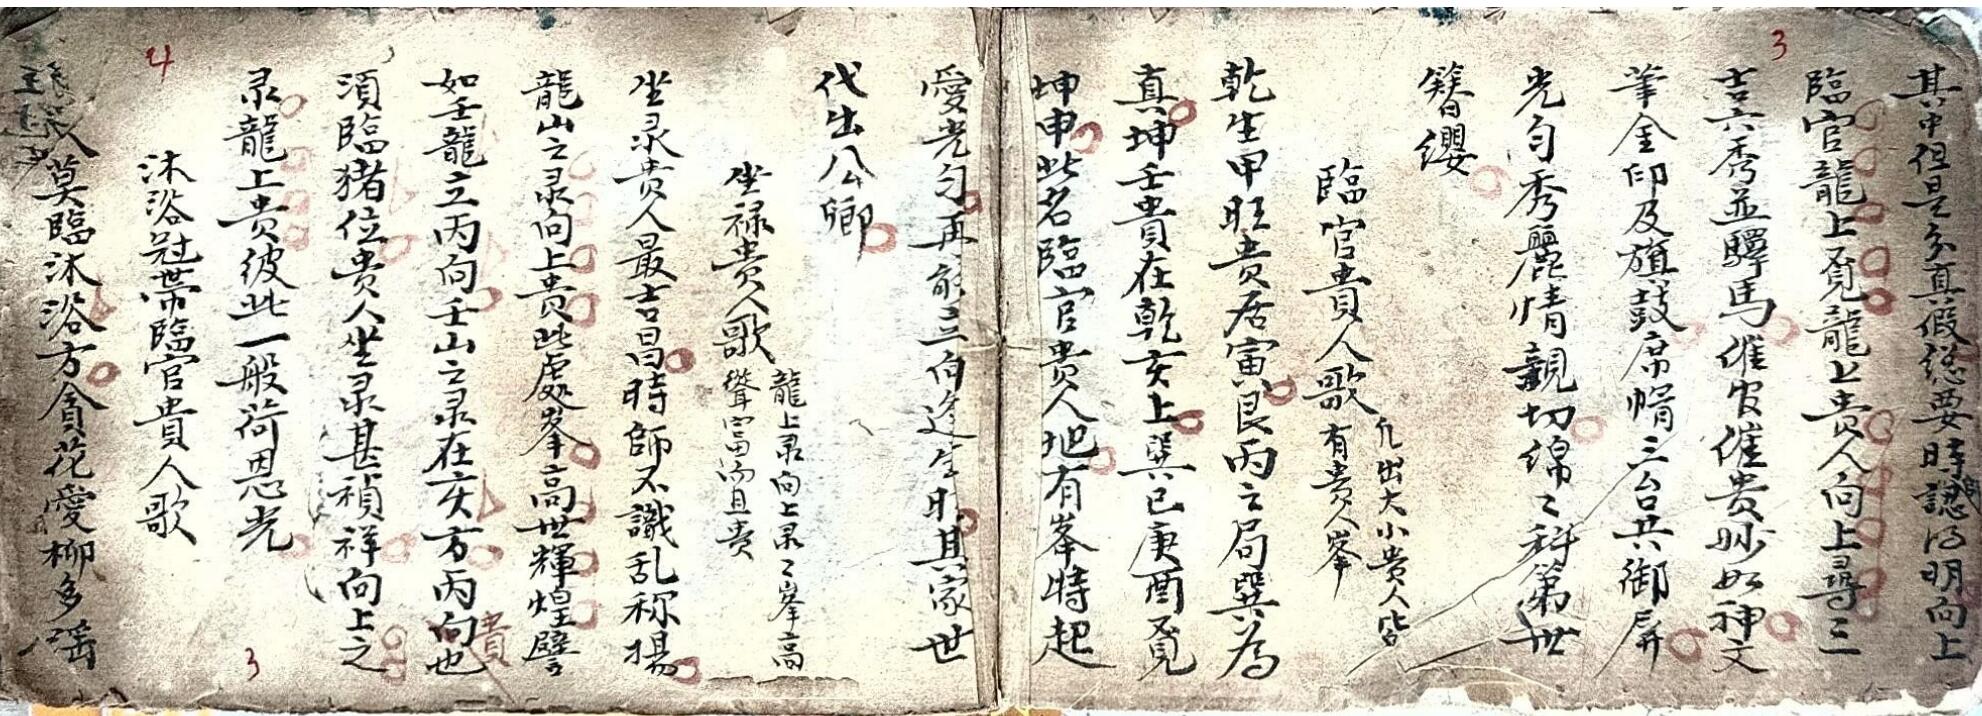 3
其中但是分真假總要時認得明向上
臨官龍上覓龍上貴人向上尋三
吉六秀並驛馬催官催貴妙如神文
筆金印及旗鼓席帽三台共御屏
光勻秀麗情親切綿々科第世
簪纓
臨官貴人歌
凡出大小貴人皆
有貴人峯
乾生甲旺貴居寅艮丙之局巽為
真坤壬貴在乾亥上巽巳庚酉覓
坤申此名臨官貴人地有峯特起
愛光勻再前三台逢生旺其家世
代出公卿
坐禄貴人歌
龍上录向上录々峯高
聳富而且貴
坐录貴人最吉昌時師不識乱称揚
龍山之录向上貴此處峯高世輝煌譬
如壬龍立丙向壬山之录在亥方丙向也
貴
須臨猪位貴人坐录甚禎祥向上之
录龍上貴彼此一般荷恩光
沐浴冠帶臨官貴人歌
莫臨沐浴方貪花愛柳多瑤
4
3